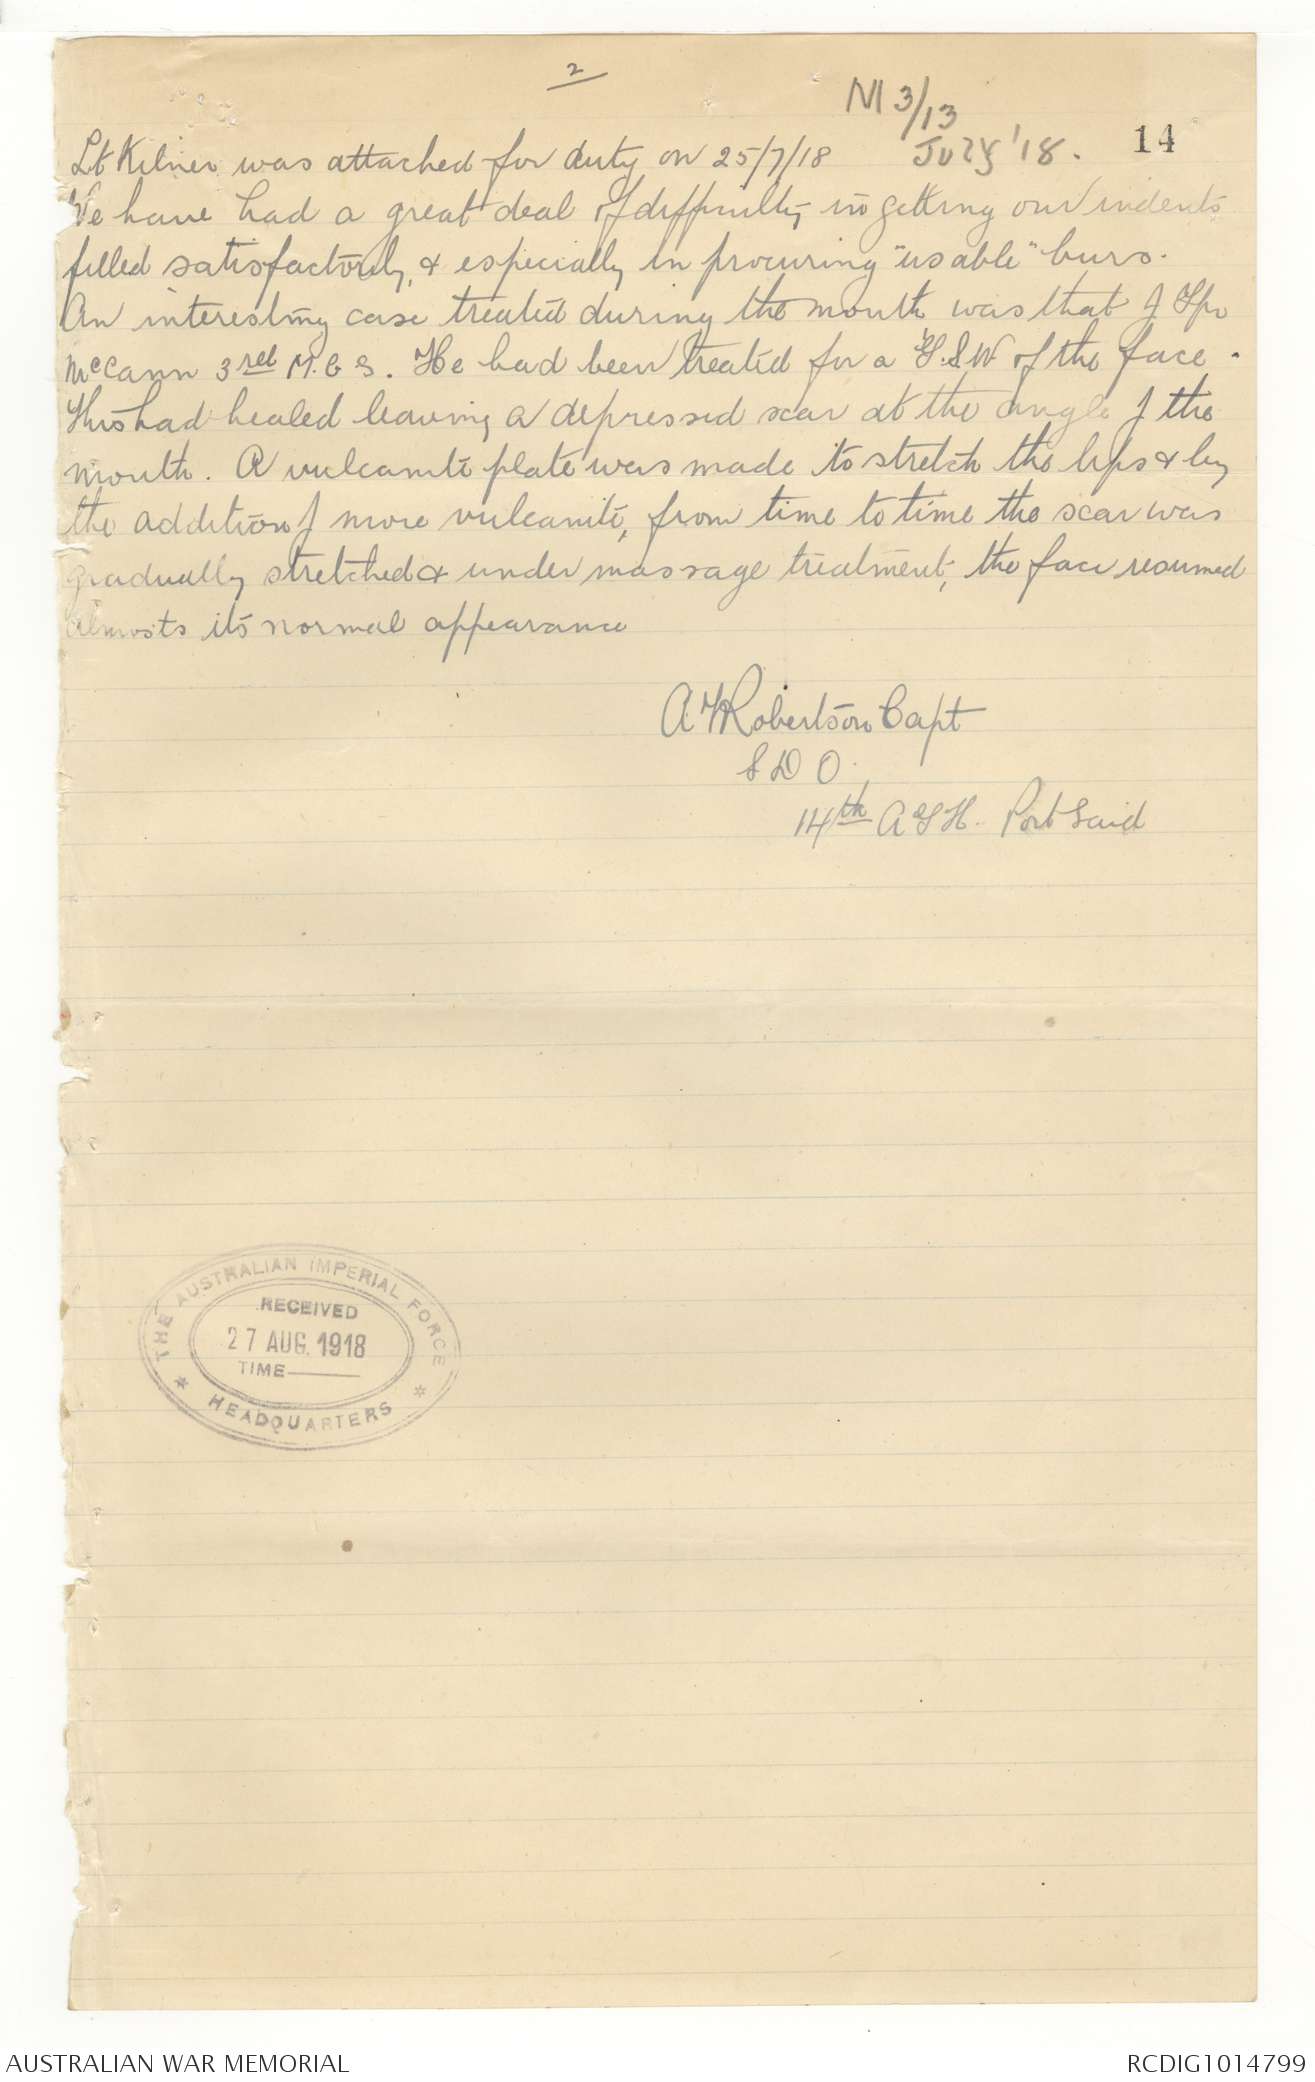 2
M 3/13
July '18.
14
Lt Kilner was attached for duty on 25/7/18
We have had a great deal of difficulty in getting our indents
filled satisfactorily, & especially in procuring "usable" burs.
An interesting case treated during the month was that of Tpr
McCann 3rd M.G.S. He had been treated for a G.S.W of the face.
This had healed leaving a depressed scar at the angle of the
mouth. A vulcanite plate was made to stretch the lips & by
the addition of more vulcanite, from time to time the scar was
gradually stretched & under massage treatment, the face resumed
almosts its normal appearance
Robertson Capt
S D O.
14th A G H. Port Said
THE AUSTRALIAN IMPERIAL FORCE
RECEIVED
27 AUG. 1918
TIME
* HEADQUARTERS *
AUSTRALIAN WAR MEMORIAL
RCDIG1014799